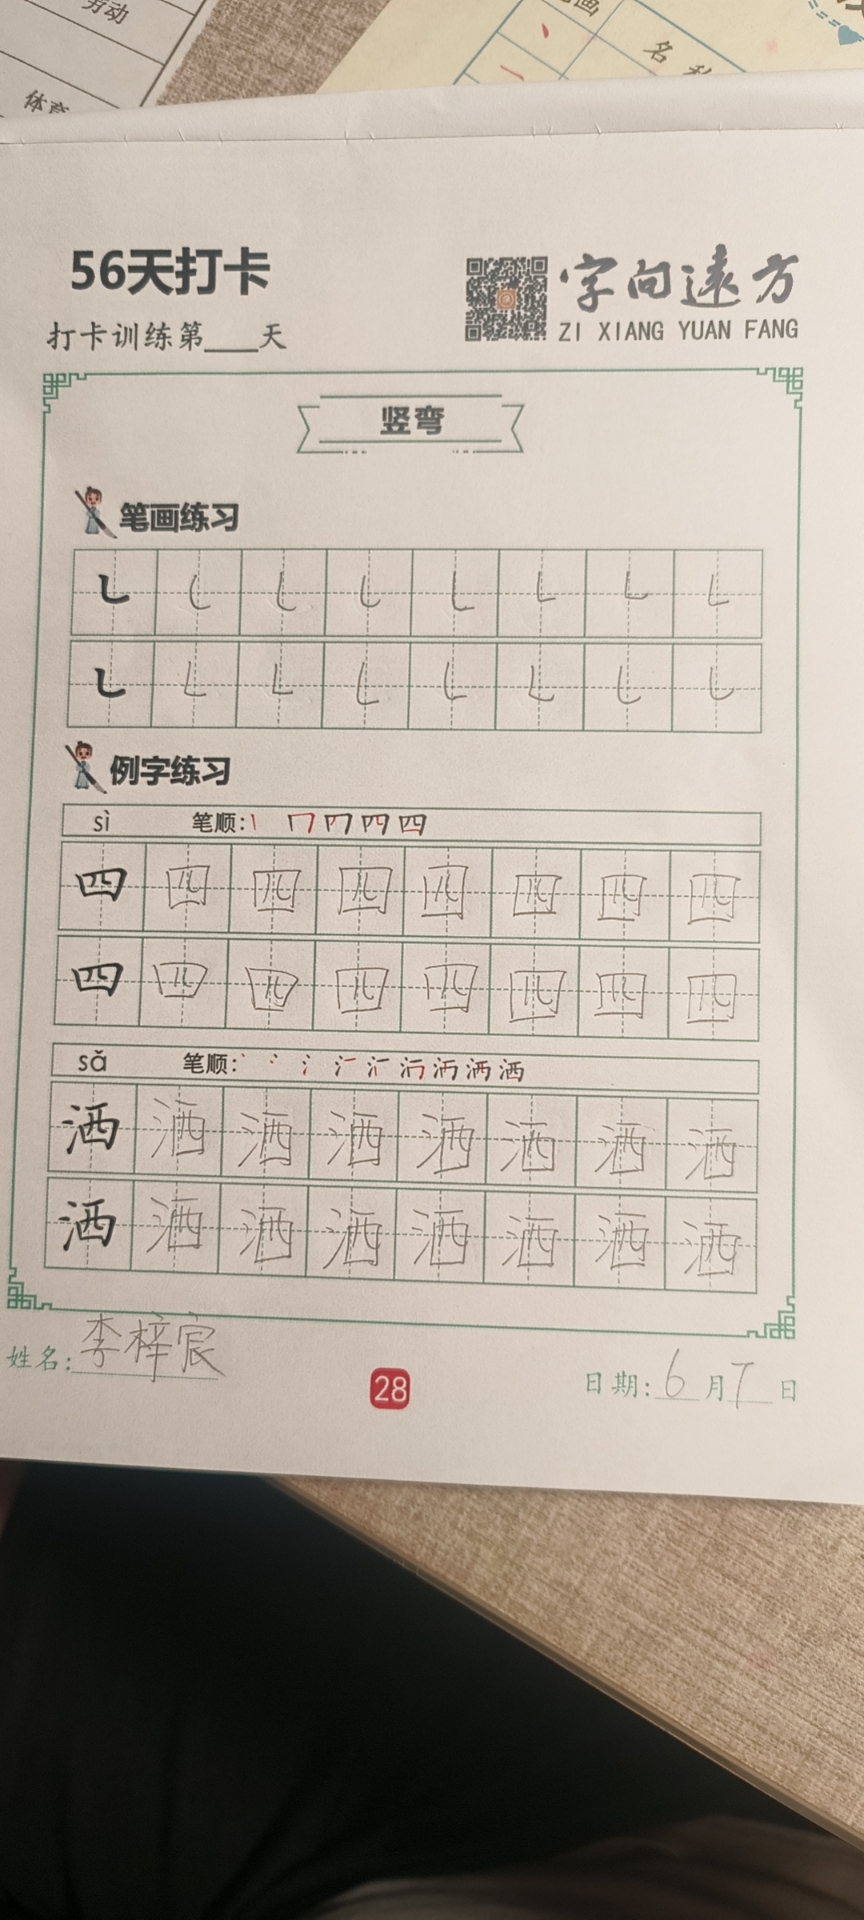 劳动
体育
名称
56天打卡
字向远方
打卡训练第___天
ZI XIANG YUAN FANG
竖弯
笔画练习
㇄ ㇄ ㇄ ㇄ ㇄ ㇄ ㇄ ㇄
㇄ ㇄ ㇄ ㇄ ㇄ ㇄ ㇄ ㇄
例字练习
sì 笔顺:
四 四 四 四 四 四 四 四
四 四 四 四 四 四 四 四
sǎ 笔顺:
洒 洒 洒 洒 洒 洒 洒 洒
洒 洒 洒 洒 洒 洒 洒 洒
姓名:李梓宸
28
日期:6月7日